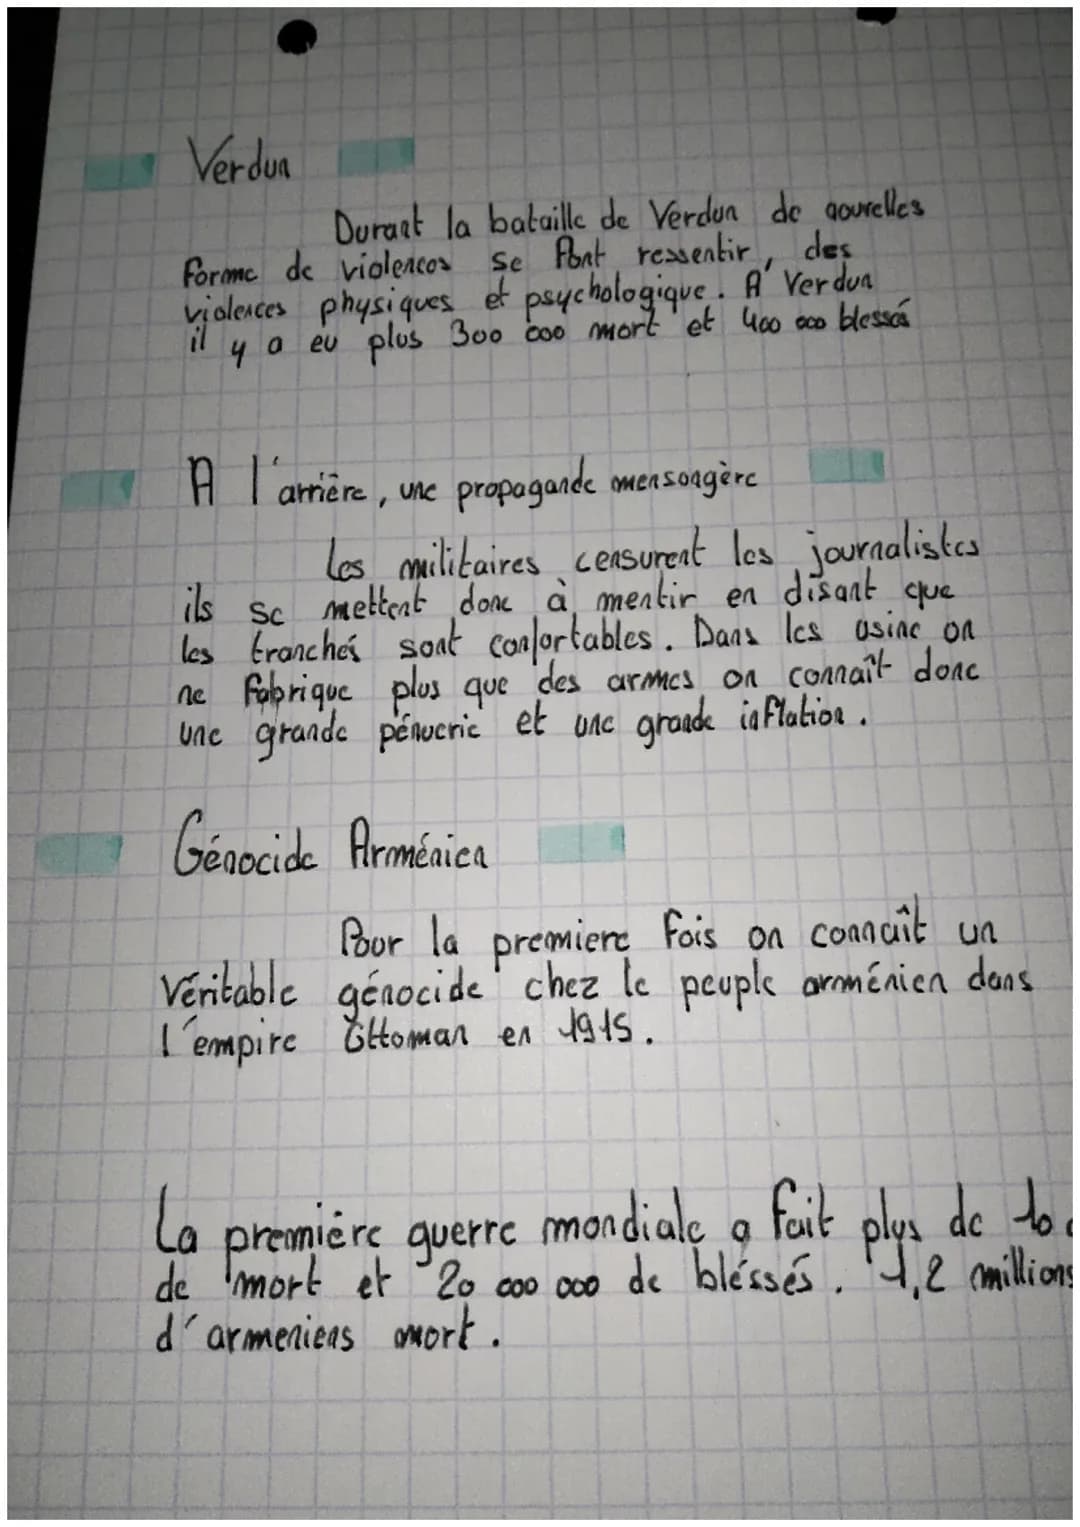 Verdun
Durant la bataille de Verdun de nouvelles
forme de violences se font ressentir, des
violences physiques et psychologique. A' Verdun
il y a eu plus 300 000 mort et 400 000 blessés
A l'arrière, une propagande mensongère
Les militaires censurent les journalistes
ils se mettent donc à mentir en disant que
les tranchés sont confortables. Dans les usine on
ne fabrique plus que des armes on connaît donc
une grande pénurie et une grande inflation.
Génocide Arménien
Pour la premiere fois on connaît un
Véritable génocide chez le peuple arménien dans
l'empire Ottoman en 1915.
La première guerre mondiale a fait plus de 10
de mort et 20 000 000 de bléssés. 1,2 millions
d'armeniens mort.